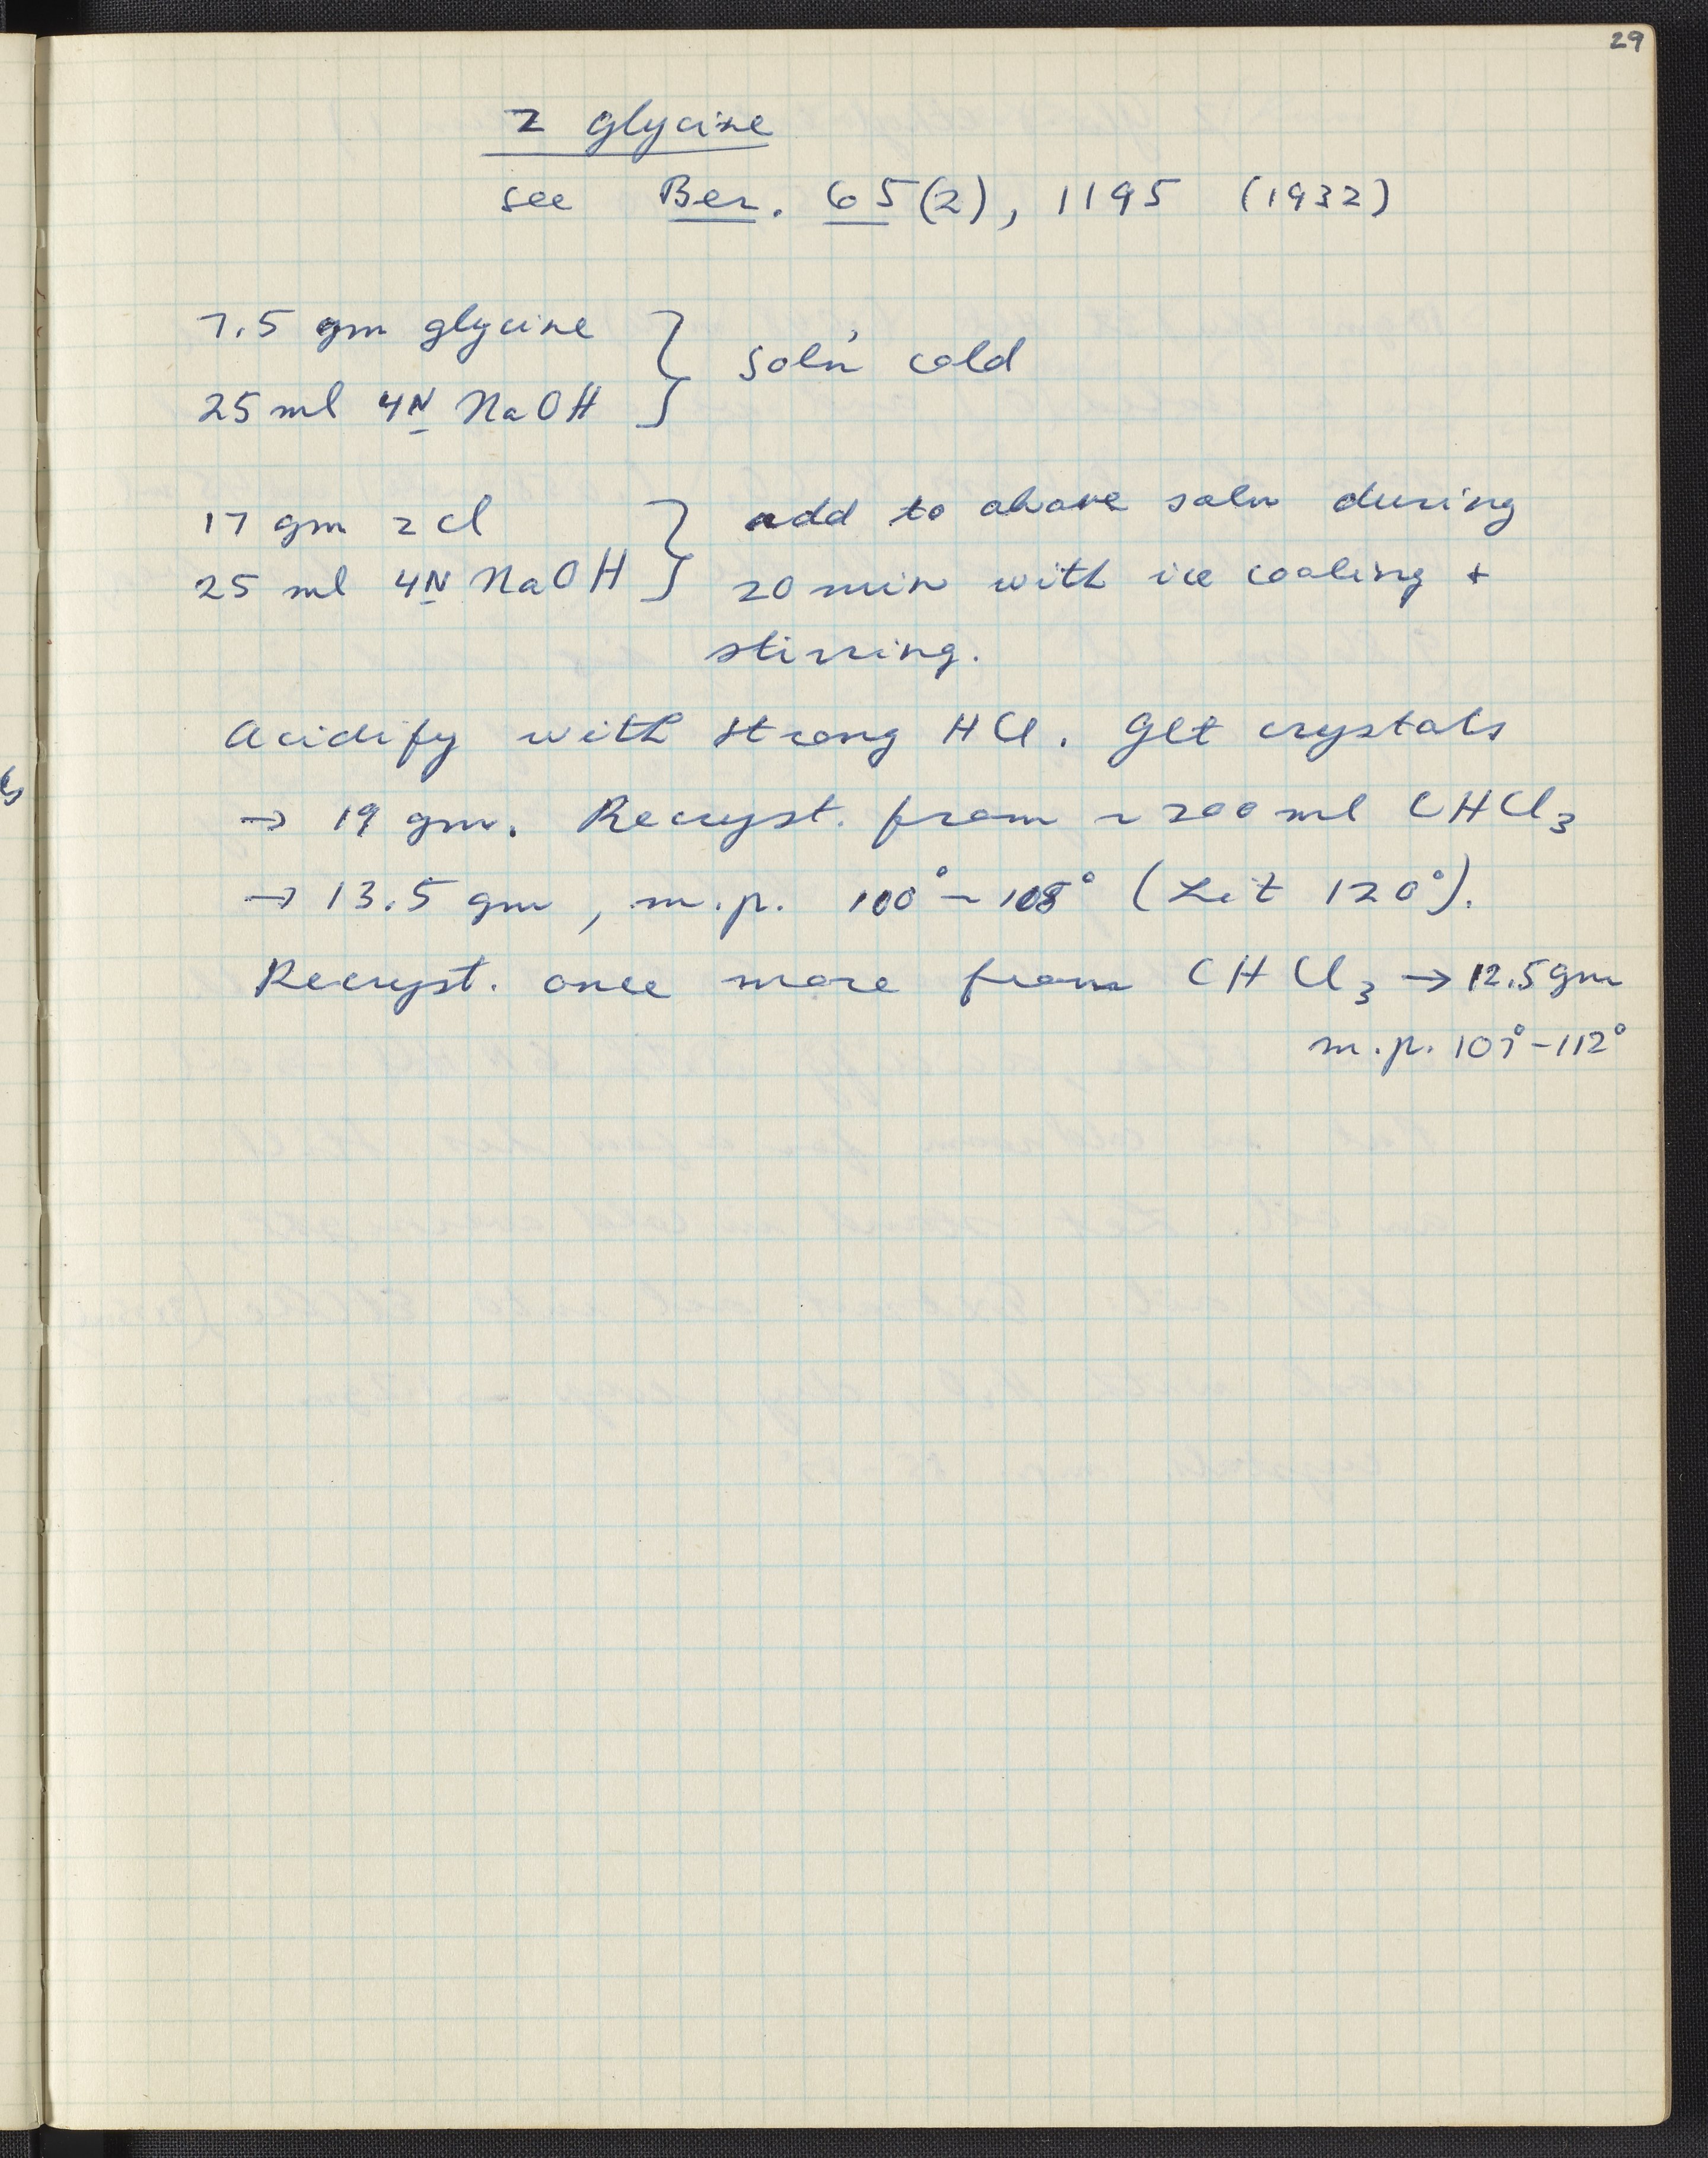 29
Z glycine
see Ber. 65(2), 1195 (1932)
7.5 gm glycine
25 ml 4N NaOH } soln cold
17 gm Z Cl
25 ml 4N NaOH } add to above soln during
20 min with ice cooling +
stirring.
Acidify with strong HCl. Get crystals
→ 19 gm. Recryst. from ~200 ml CHCl3
→ 13.5 gm, m.p. 100°-108° (Lit 120°).
Recryst. once more from CHCl3 → 12.5 gm
m.p. 107°-112°